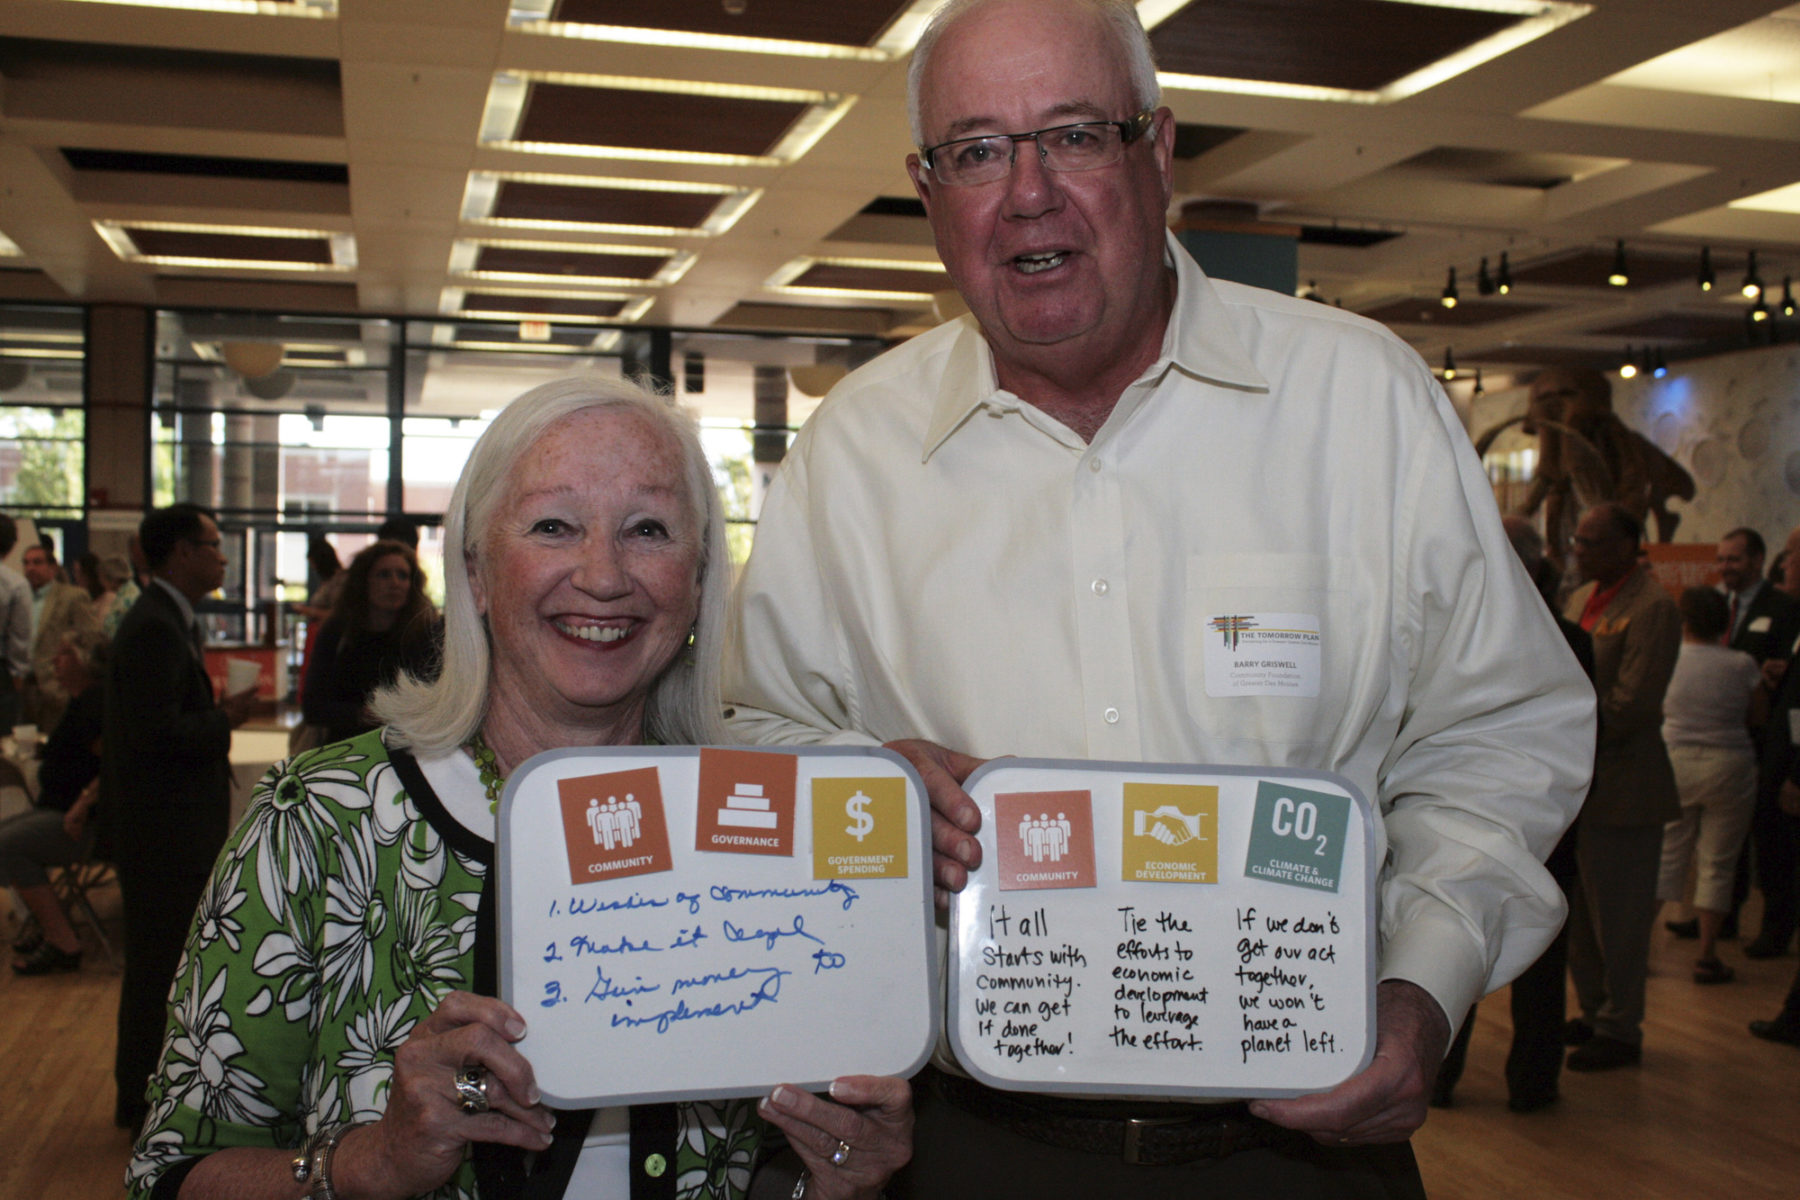 THE TOMORROW PLAN
BARRY GRISWELL
Community Foundation
of Greater Des Moines
COMMUNITY
GOVERNANCE
GOVERNMENT
SPENDING
1. Wishes of community
2. Make it legal
3. Give money to
implement
COMMUNITY
ECONOMIC
DEVELOPMENT
CO2
CLIMATE &
CLIMATE CHANGE
It all
starts with
community.
We can get
it done
together!
Tie the
efforts to
economic
development
to leverage
the effort.
If we don't
get our act
together,
we won't
have a
planet left.